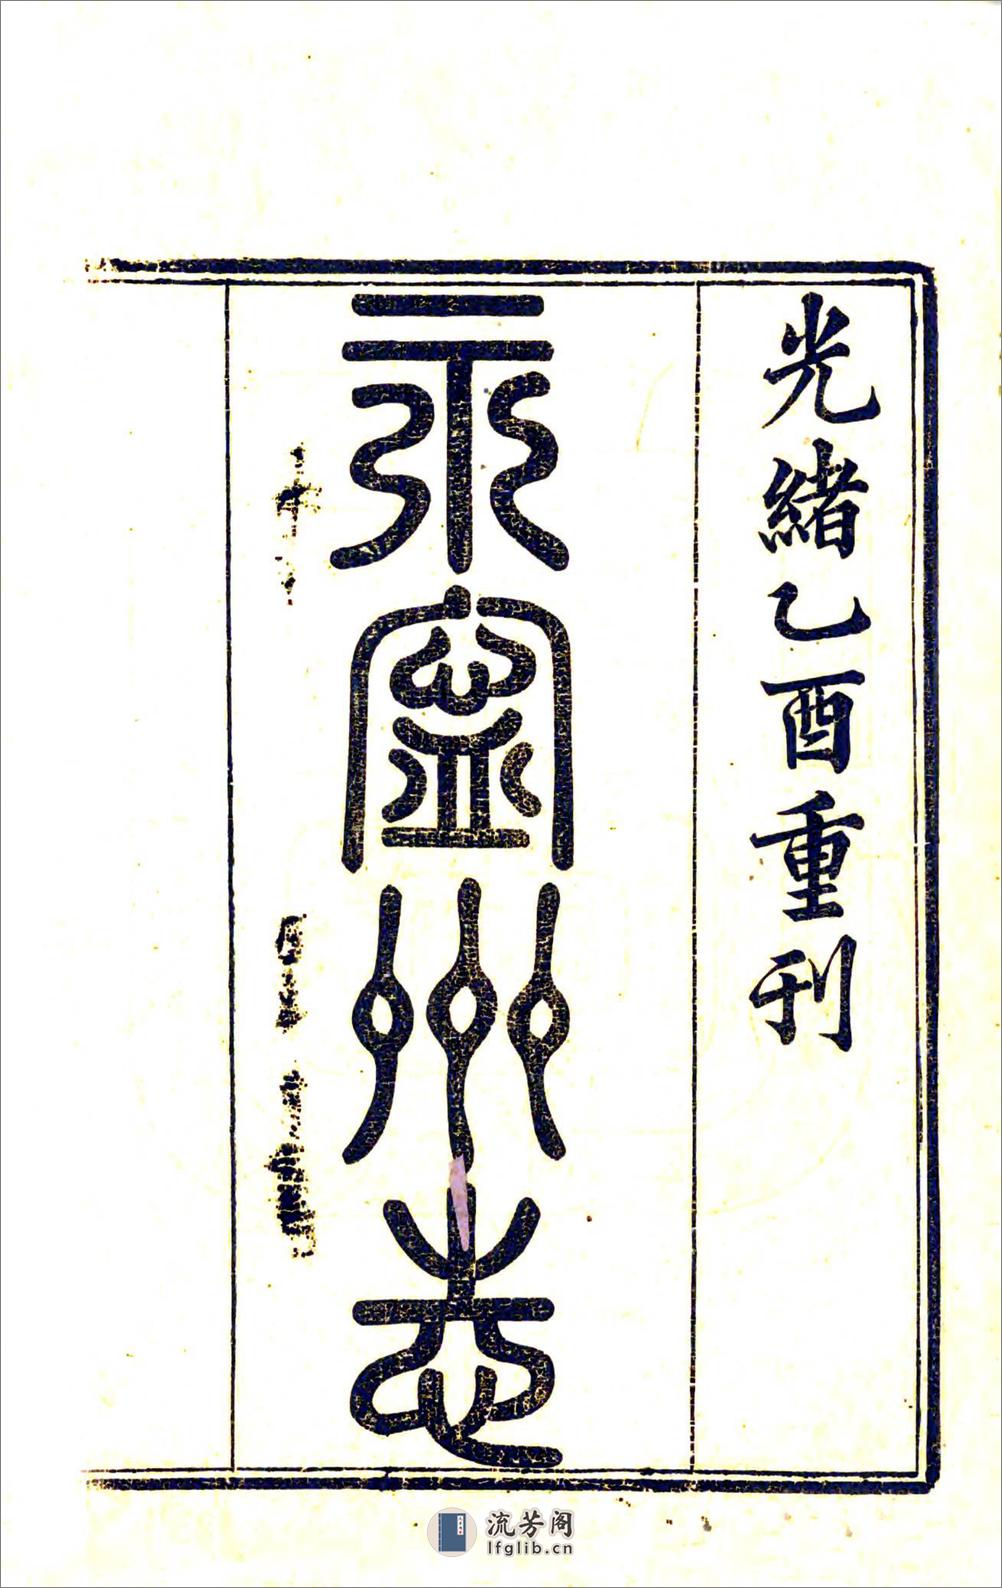 光緒乙酉重刊
永寧州志
流芳阁
lfglib.cn